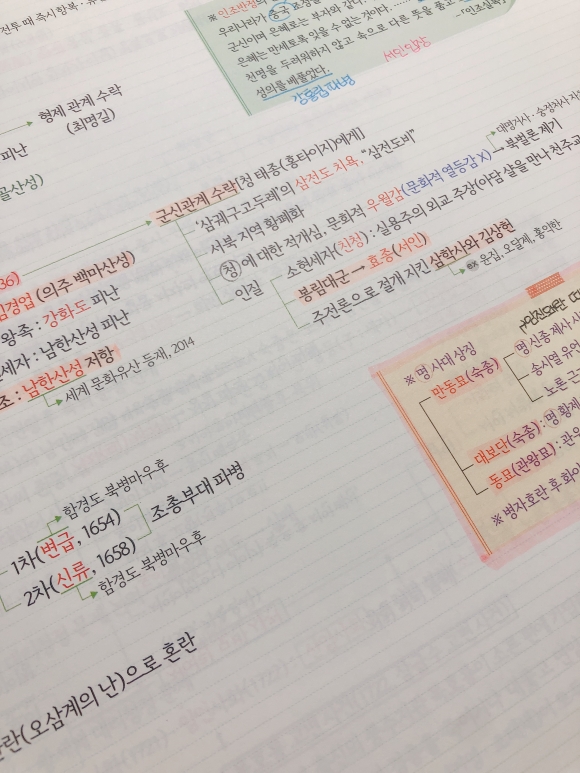 전투 때 즉시 항복
※ 인조반정
우리나라가 중국 조정을
군신이며 은혜로는 부자와 같다.
은혜는 만세토록 잊을 수 없는 것이다.
천명을 두려워하지 않고 속으로 다른 뜻을 품고
성의를 베풀었다.
-「인조실록」
강홍립 파병
서인입장
형제 관계 수락
(최명길)
피난
골산성)
군신관계 수락[청 태종(홍타이지)에게]
'삼궤구고두례'의 삼전도 치욕, "삼전도비"
서북 지역 황폐화
청에 대한 적개심, 문화적 우월감(문화적 열등감 X)
대명거사·숭정처사
북벌론 제기
인질
소현세자(친청) : 실용주의 외교 주장(아담 샬을 만나 천주교
봉림대군 → 효종(서인)
주전론으로 절개 지킨 삼학사와 김상헌
윤집, 오달제, 홍익한
36)
임경업 (의주 백마산성)
왕족 : 강화도 피난
세자 : 남한산성 피난
조 : 남한산성 저항
세계 문화유산 등재, 2014
임진왜란 때
※ 명 사대 상징
만동묘(숙종)
명 신종 제사
송시열 유언
노론
대보단(숙종) : 명 황제
동묘(관왕묘) : 관우
※ 병자호란 후 화이
함경도 북병마우후
1차(변급, 1654)
2차(신류, 1658)
조총부대 파병
함경도 북병마우후
란(오삼계의 난)으로 혼란